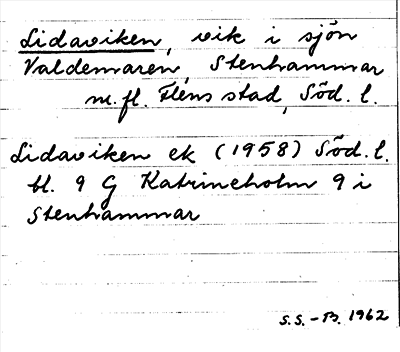 Lidaviken, vik i sjön
Valdemaren, Stenhammar
m.fl. Flens stad, Söd. l.
Lidaviken ek (1958) Söd. l.
bl. 9 G Katrineholm 9 i
Stenhammar
S.S.-B. 1962